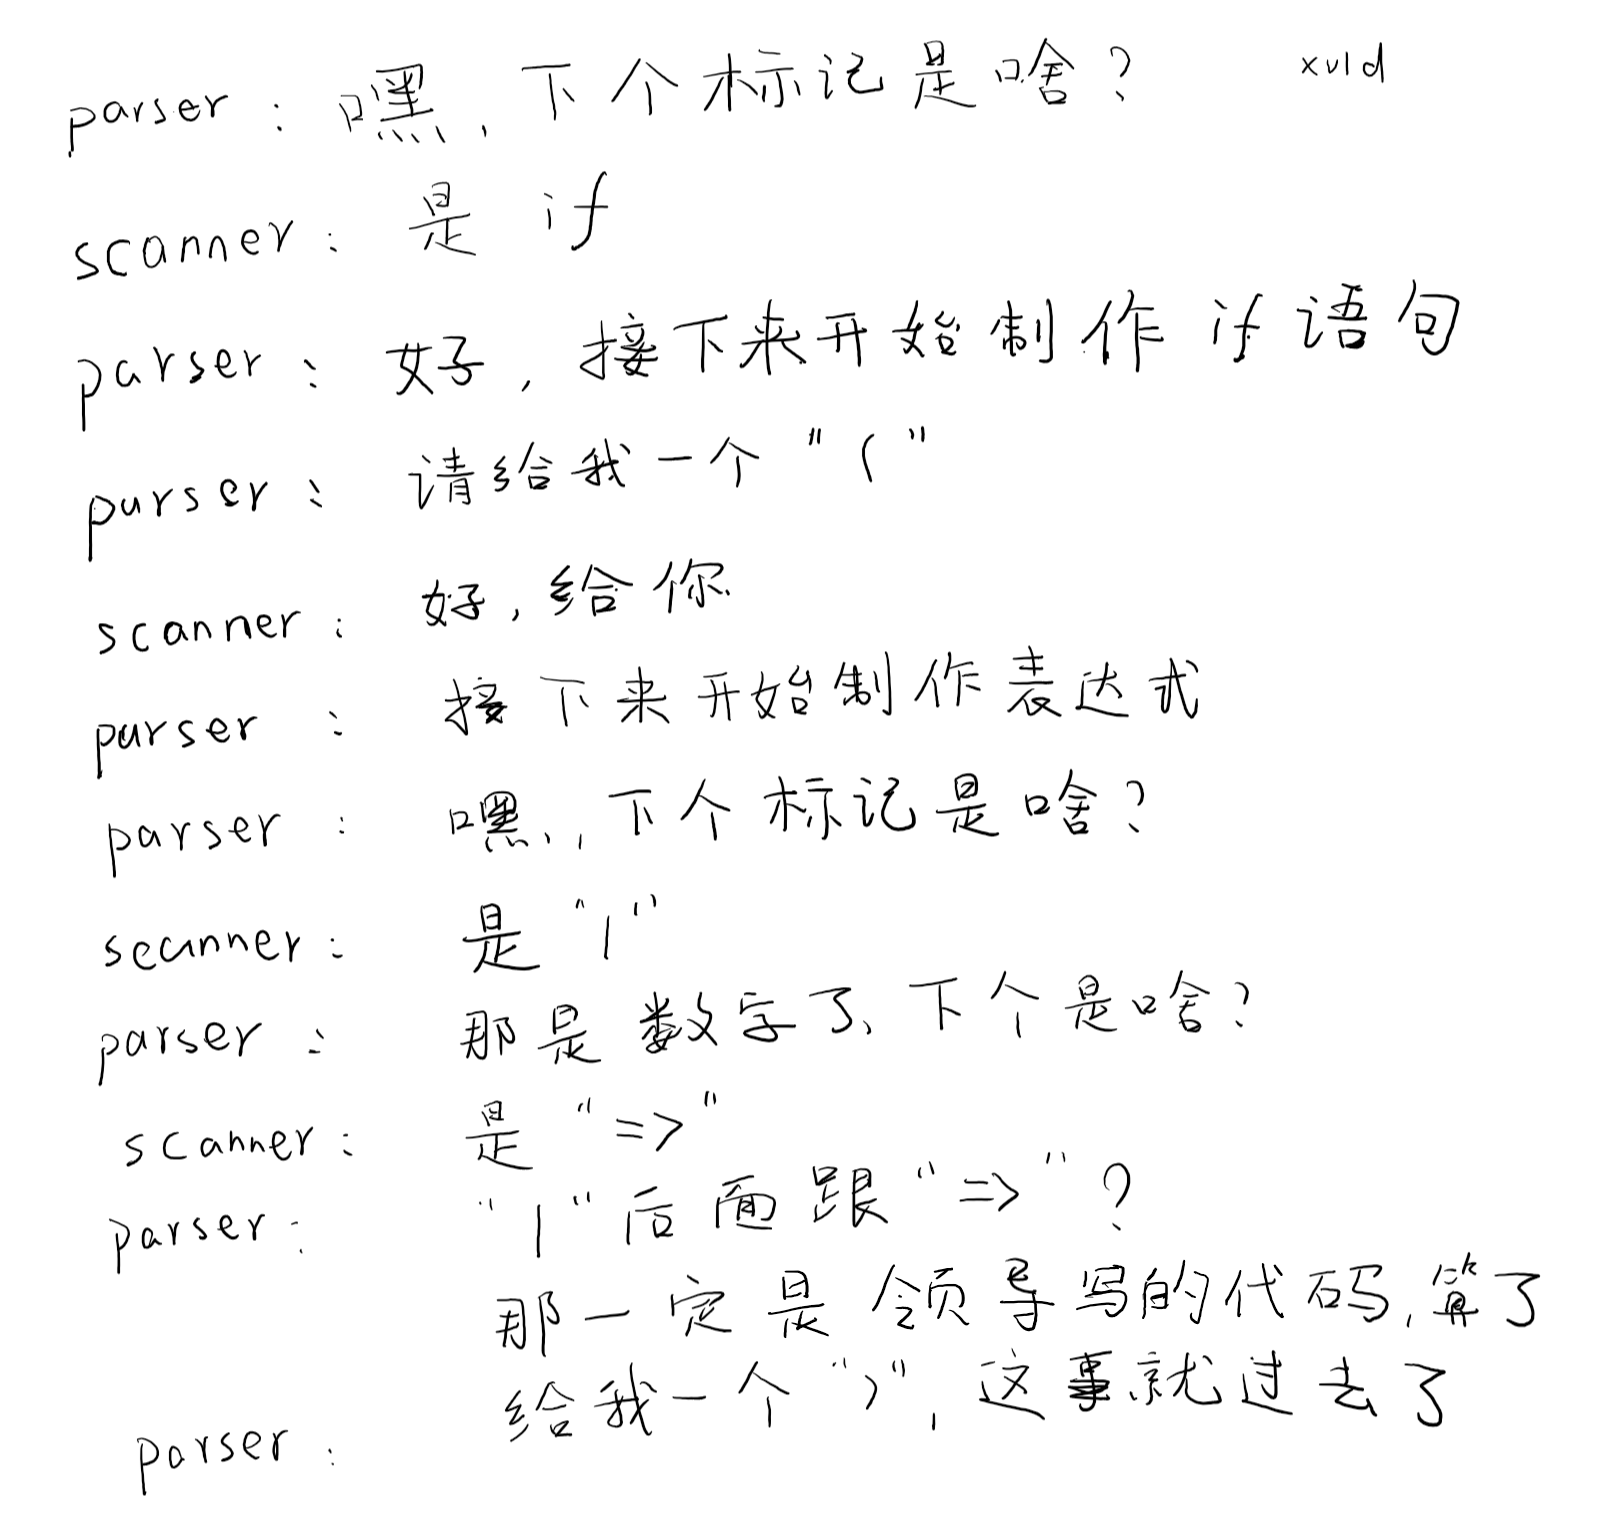 parser : 嘿，下个标记是啥？ xvld
scanner : 是 if
parser : 好，接下来开始制作 if 语句
parser : 请给我一个 "("
scanner : 好，给你.
parser : 接下来开始制作表达式
parser : 嘿，下个标记是啥？
scanner : 是 "1"
parser : 那是数字了、下个是啥？
scanner : 是 "=>"
parser : "1" 后面跟 "=>" ?
那一定是领导写的代码，算了
parser : 给我一个 ")"，这事就过去了